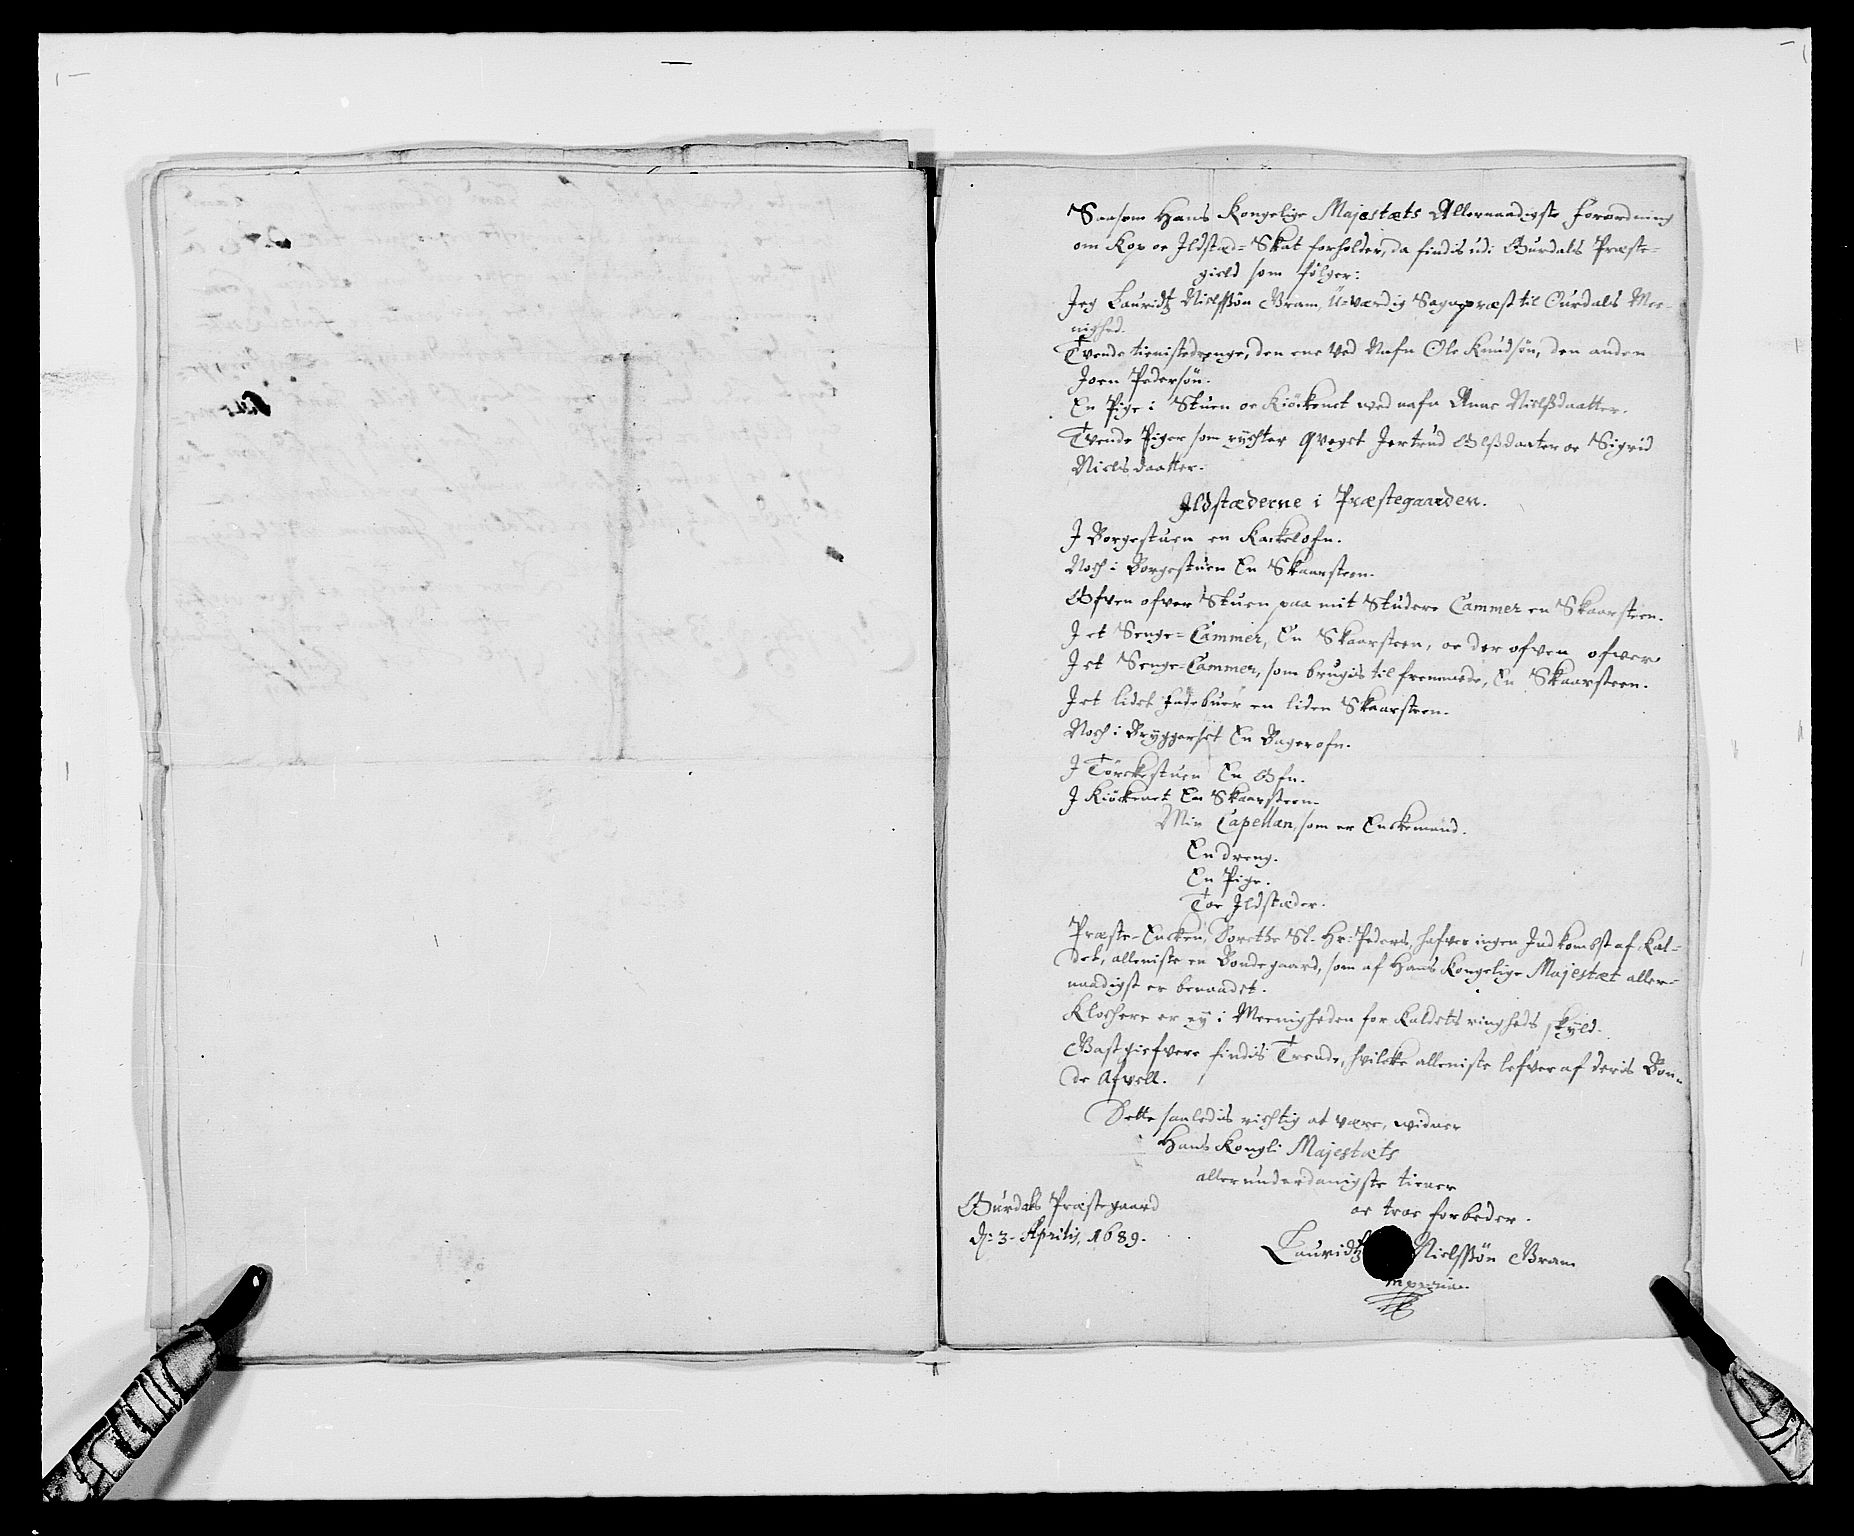 Saasom Hans Kongelige Majestæts Allernaadigste forordning
om Kop oc Ildstæd-Skat forholder, da findis udi Ourdals Præste-
gield som følger:
Jeg Lauridtz Nielssøn Gram, U-værdig Sogneprest til Ourdals Mee-
nighed.
Tvende tienistedrenge, den ene ved Nafn Ole Knudsøn, den anden
Joen Pedersøn.
En Pige i Stuen oc Kiöckenet wed nafn Anne Nielssdaatter.
Tvende Piger som rychter qveget Jertrud Olssdaatter oc Sigrid
Nielsdaatter.
Ildstæderne i Præstegaarden.
J Borgestuen en Kackelofn.
Noch i Borgestuen En Skaarsteen.
Ofven ofver Stuen paa mit Studere Cammer en Skaarsteen.
J et Senge-Cammer, En Skaarsteen, oc der ofven ofver
J et Senge-Cammer, som brugis til fremmede, En Skaarsteen.
J et lidet Fadebuer en liden Skaarsteen.
Noch i Bryggerset En Bagerofn.
J Törckestuen En Ofn.
J Kiöckenet En Skaarsteen.
Min Capellan, som er Enckemand.
En dreng.
En Pige.
Toe Ildstæder.
Præste-Encken, Dorethe Sl. Hr: Peders, hafver ingen Indkombst af Kal-
det, alleniste en Bondegaard, som af Hans Kongelige Majestæt aller-
naadigst er benaadet.
Klochere er ey i Meenigheden for Kaldets ringheds skyld.
Gastgiefvere findis Trende, hvilcke alleniste lefver af deris Bon-
de Afvell.
Dette saaledis richtig at være, widner
Hans Kongli Majestæts
allerunderdanigste tiener
oc troe forbeder.
Ourdals Præstegaard
d: 3. Aprilis, 1689.
Lauridtz Nielssøn Gram
mppria.